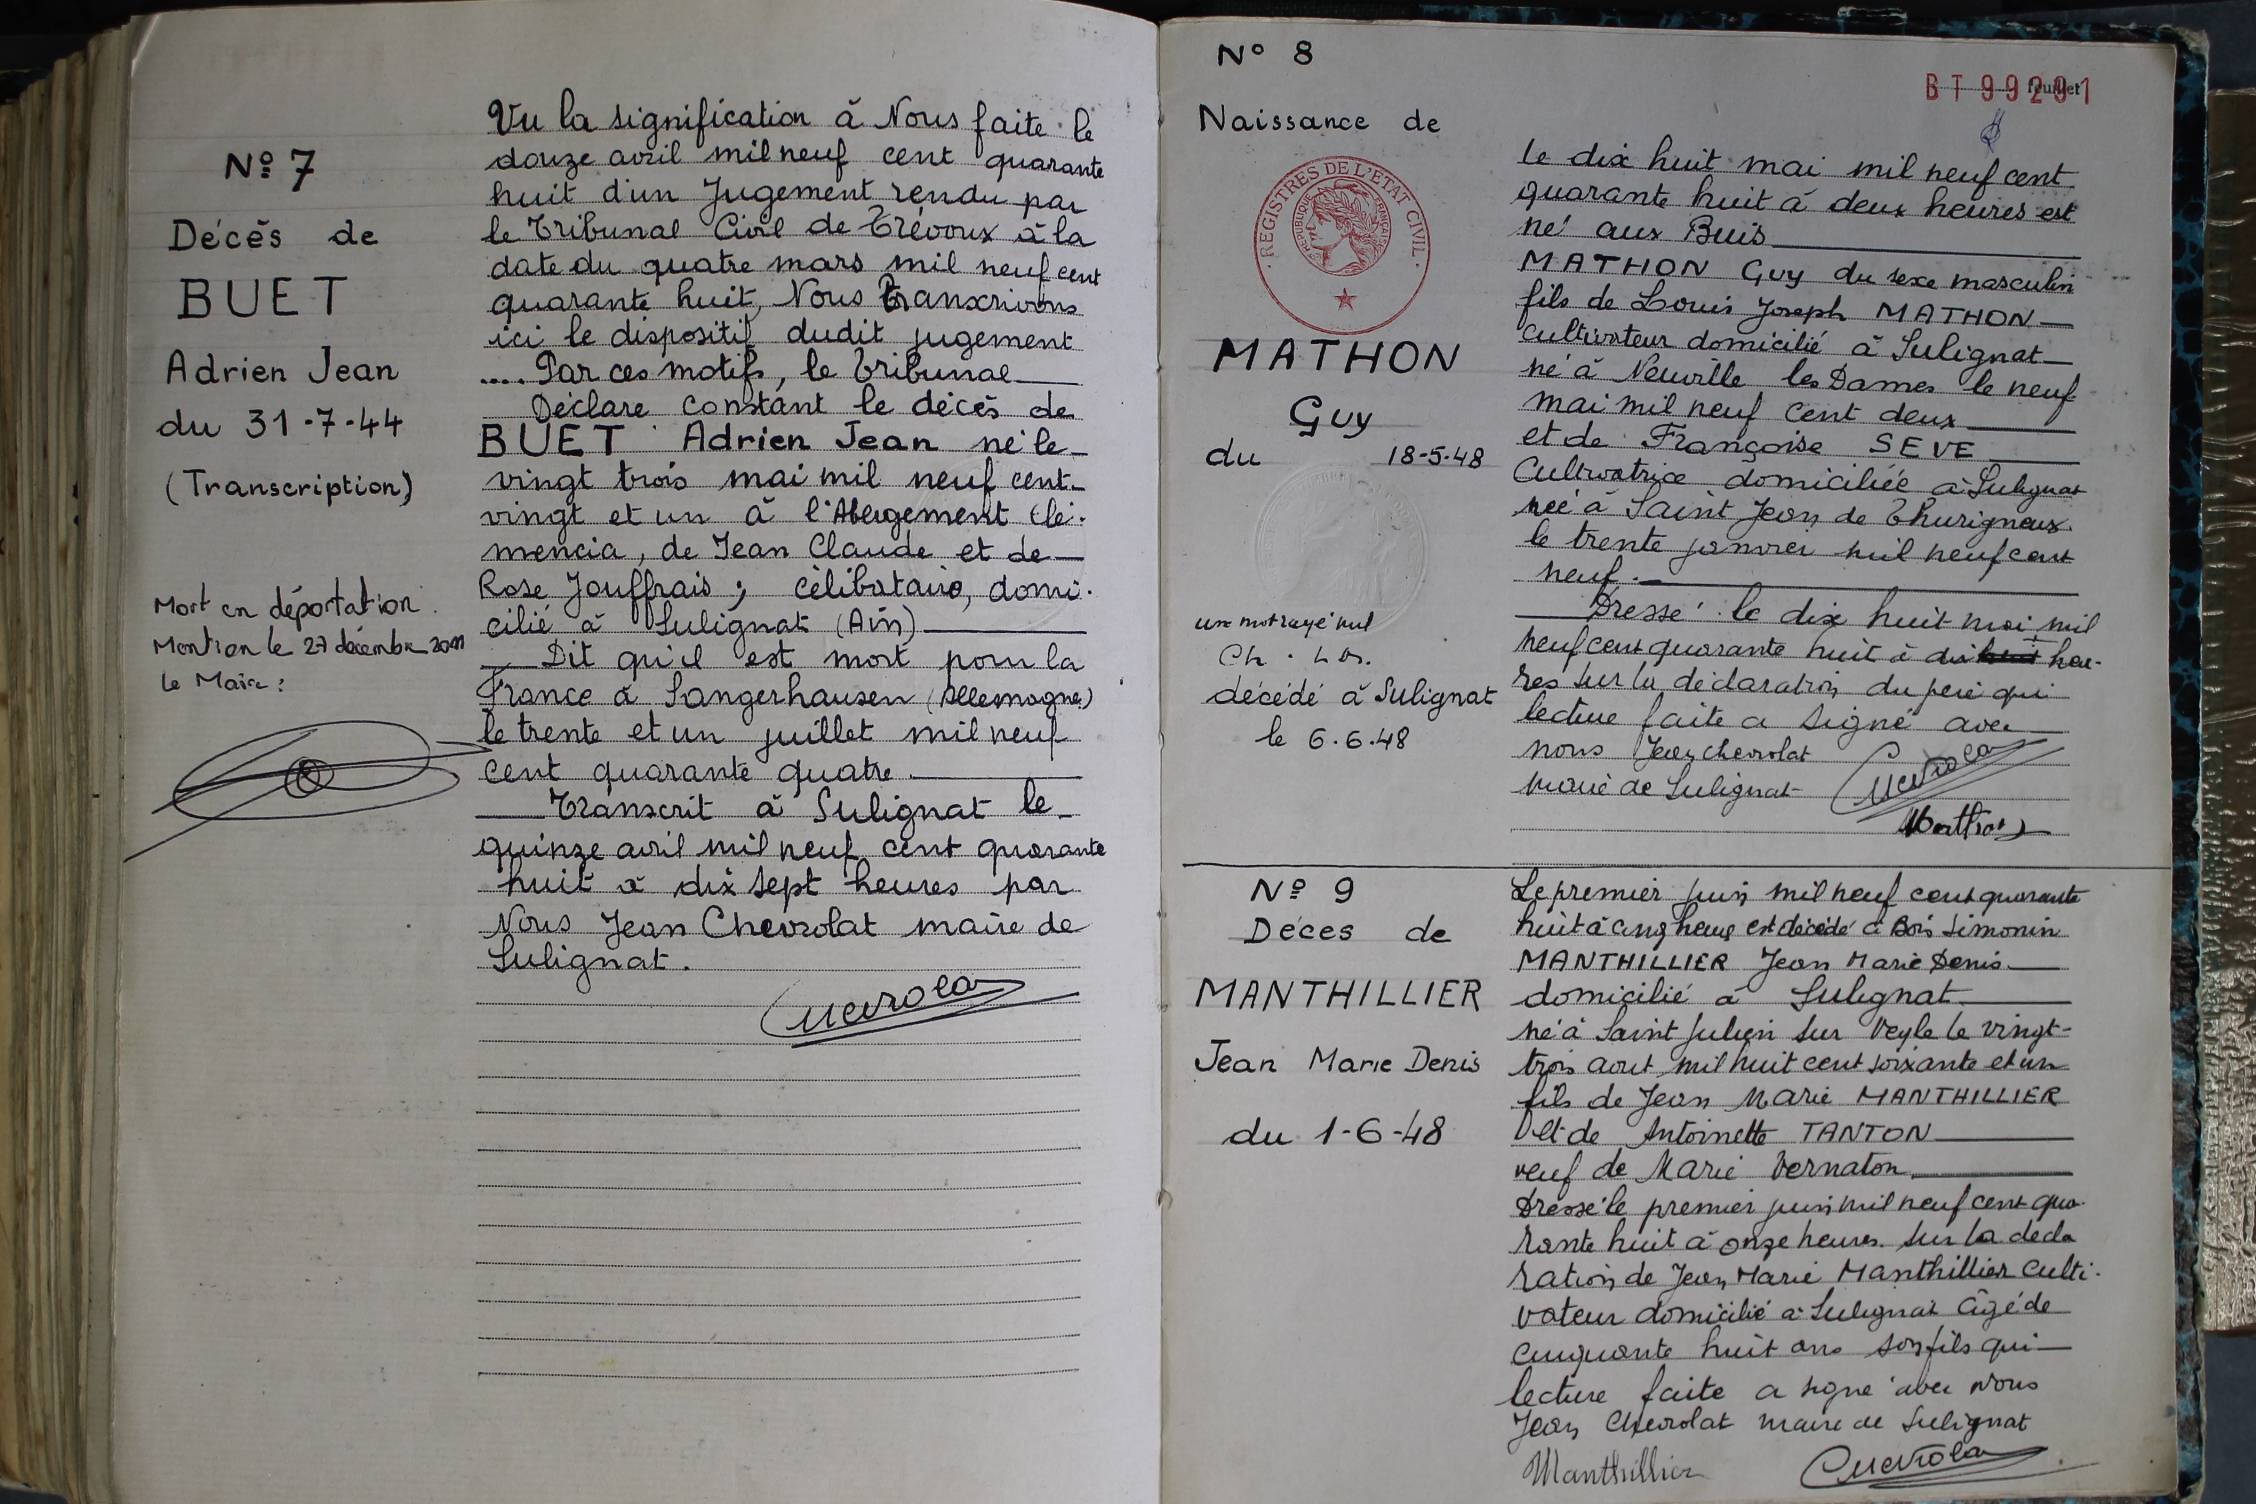 Nº 7
Décès de
BUET
Adrien Jean
du 31-7-44
(Transcription)
Mort en déportation.
Mention le 27 décembre 2011
le Maire :
Vu la signification à Nous faite le
douze avril mil neuf cent quarante
huit d'un Jugement rendu par
le Tribunal Civil de Trévoux à la
date du quatre mars mil neuf cent
quarante huit, Nous Transcrivons
ici le dispositif dudit jugement
.... Par ces motifs, le Tribunal
Déclare constant le décès de
BUET Adrien Jean né le
vingt trois mai mil neuf cent
vingt et un à l'Abergement Clé-
mencia, de Jean Claude et de
Rose Jouffrais ; célibataire, domi-
cilié à Sulignat (Ain)
Dit qu'il est mort pour la
France à Sangerhausen (Allemagne)
le trente et un juillet mil neuf
cent quarante quatre.
Transcrit à Sulignat le
quinze avril mil neuf cent quarante
huit à dix sept heures par
Nous Jean Chevrolat maire de
Sulignat.
Chevrolat
Nº 8
Naissance de
REGISTRES DE L'ÉTAT CIVIL
REPUBLIQUE FRANÇAISE
MATHON
Guy
du 18-5-48
un mot rayé nul
Ch.
décédé à Sulignat
le 6.6.48
BT 99291
feuillet
le dix huit mai mil neuf cent
quarante huit à deux heures est
né aux Buis
MATHON Guy du sexe masculin
fils de Louis Joseph MATHON
cultivateur domicilié à Sulignat
né à Neuville les Dames le neuf
mai mil neuf cent deux
et de Françoise SEVE
Cultivatrice domiciliée à Sulignat
née à Saint Jean de Thurigneux
le trente janvier mil neuf cent
neuf.
Dressé le dix huit mai mil
neuf cent quarante huit à dix heu-
res sur la déclaration du père qui
lecture faite a signé avec
nous Jean Chevrolat
maire de Sulignat
Chevrolat
Mathon
Nº 9
Décès de
MANTHILLIER
Jean Marie Denis
du 1-6-48
Le premier juin mil neuf cent quarante
huit à cinq heures est décédé à Bois Simonin
MANTHILLIER Jean Marie Denis
domicilié à Sulignat
né à Saint Julien sur Veyle le vingt-
trois aout mil huit cent soixante et un
fils de Jean Marie MANTHILLIER
et de Antoinette TANTON
veuf de Marie Vernaton
Dressé le premier juin mil neuf cent qua-
rante huit à onze heures sur la décla
ration de Jean Marie Manthillier culti-
vateur domicilié à Sulignat âgé de
cinquante huit ans son fils qui
lecture faite a signé avec Nous
Jean Chevrolat maire de Sulignat
Manthillier
Chevrolat